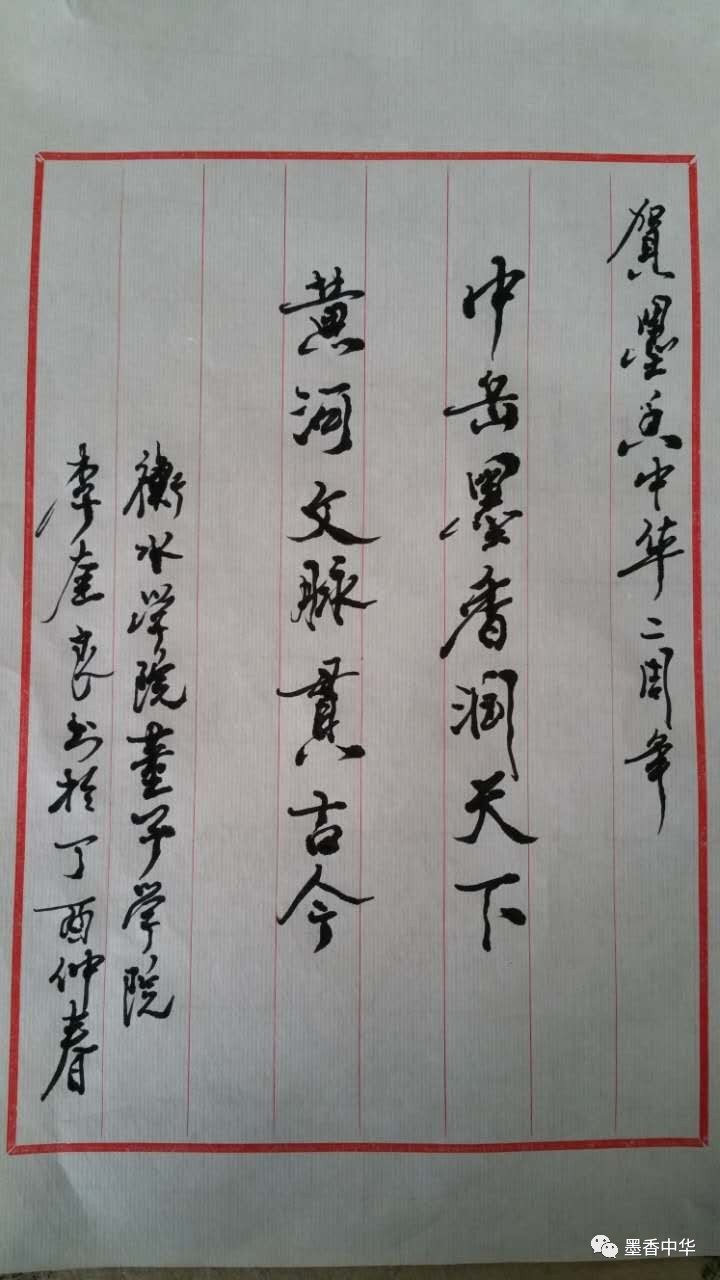 賀墨香中华二周年
中岳墨香润天下
黄河文脉貫古今
衡水学院董子学院
李奎良书於丁酉仲春
墨香中华